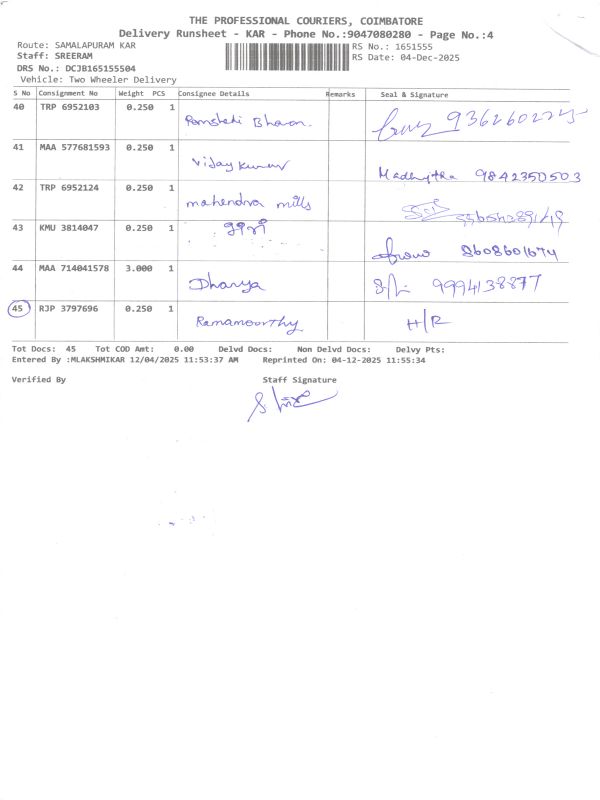 THE PROFESSIONAL COURIERS, COIMBATORE
Delivery Runsheet - KAR - Phone No.:9047080280 - Page No.:4
Route: SAMALAPURAM KAR RS No.: 1651555
Staff: SREERAM RS Date: 04-Dec-2025
DRS No.: DCJB165155504
Vehicle: Two Wheeler Delivery
S No Consignment No Weight PCS Consignee Details Remarks Seal & Signature
40 TRP 6952103 0.250 1 Bhavan.
41 MAA 577681593 0.250 1 Vijay kumar 9842350503
42 TRP 6952124 0.250 1 mahendra mills
43 KMU 3814047 0.250 1 8608601674
44 MAA 714041578 3.000 1 Dhanya 9994138877
45 RJP 3797696 0.250 1 Ramamoorthy H/R
Tot Docs: 45 Tot COD Amt: 0.00 Delvd Docs: Non Delvd Docs: Delvy Pts:
Entered By :MLAKSHMIKAR 12/04/2025 11:53:37 AM Reprinted On: 04-12-2025 11:55:34
Verified By Staff Signature